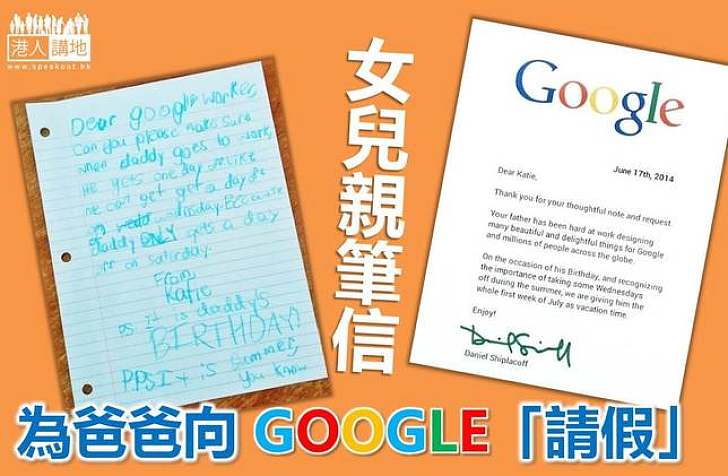 港人講地
www.speakout.hk
Dear google worker,
Can you please make sure
when daddy goes to work,
He gets one day off. like
he can get get a day off
on wedo wednesday. Because
daddy ONLY gets a day
off on saturday.
From
Katie
ps It is daddy's
BIRTHDAY!
PPS It is summer,
You know
女兒親筆信
Google
June 17th, 2014
Dear Katie,
Thank you for your thoughtful note and request.
Your father has been hard at work designing
many beautiful and delightful things for Google
and millions of people across the globe.
On the occasion of his Birthday, and recognizing
the importance of taking some Wednesdays
off during the summer, we are giving him the
whole first week of July as vacation time.
Enjoy!
Daniel Shiplacoff
為爸爸向 GOOGLE「請假」